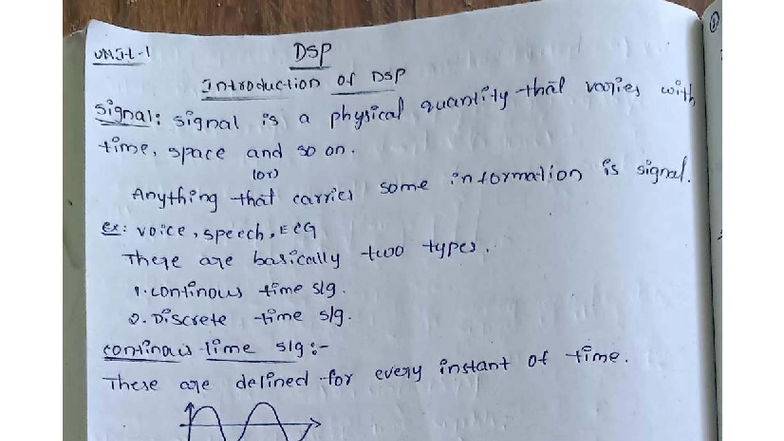 UNIT-1
DSP
Introduction of DSP
Signal: signal is a physical quantity that varies with
time, space and so on.
(or)
Anything that carries some information is signal.
Ex: voice, speech, ECG
There are basically two types.
1. continous time s/g.
2. Discrete time s/g.
continous time s/g:-
These are defined for every instant of time.